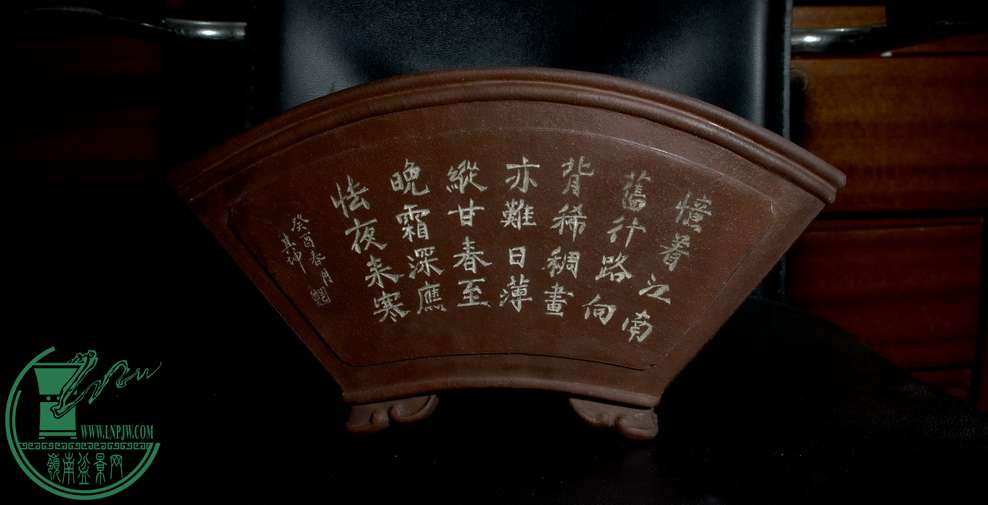 憶着江南
舊行路向
背稀稠畫
亦難日薄
縱甘春至
晚霜深應
怯夜来寒
癸酉春月
其坤
WWW.LNPJW.COM
嶺南盆景网